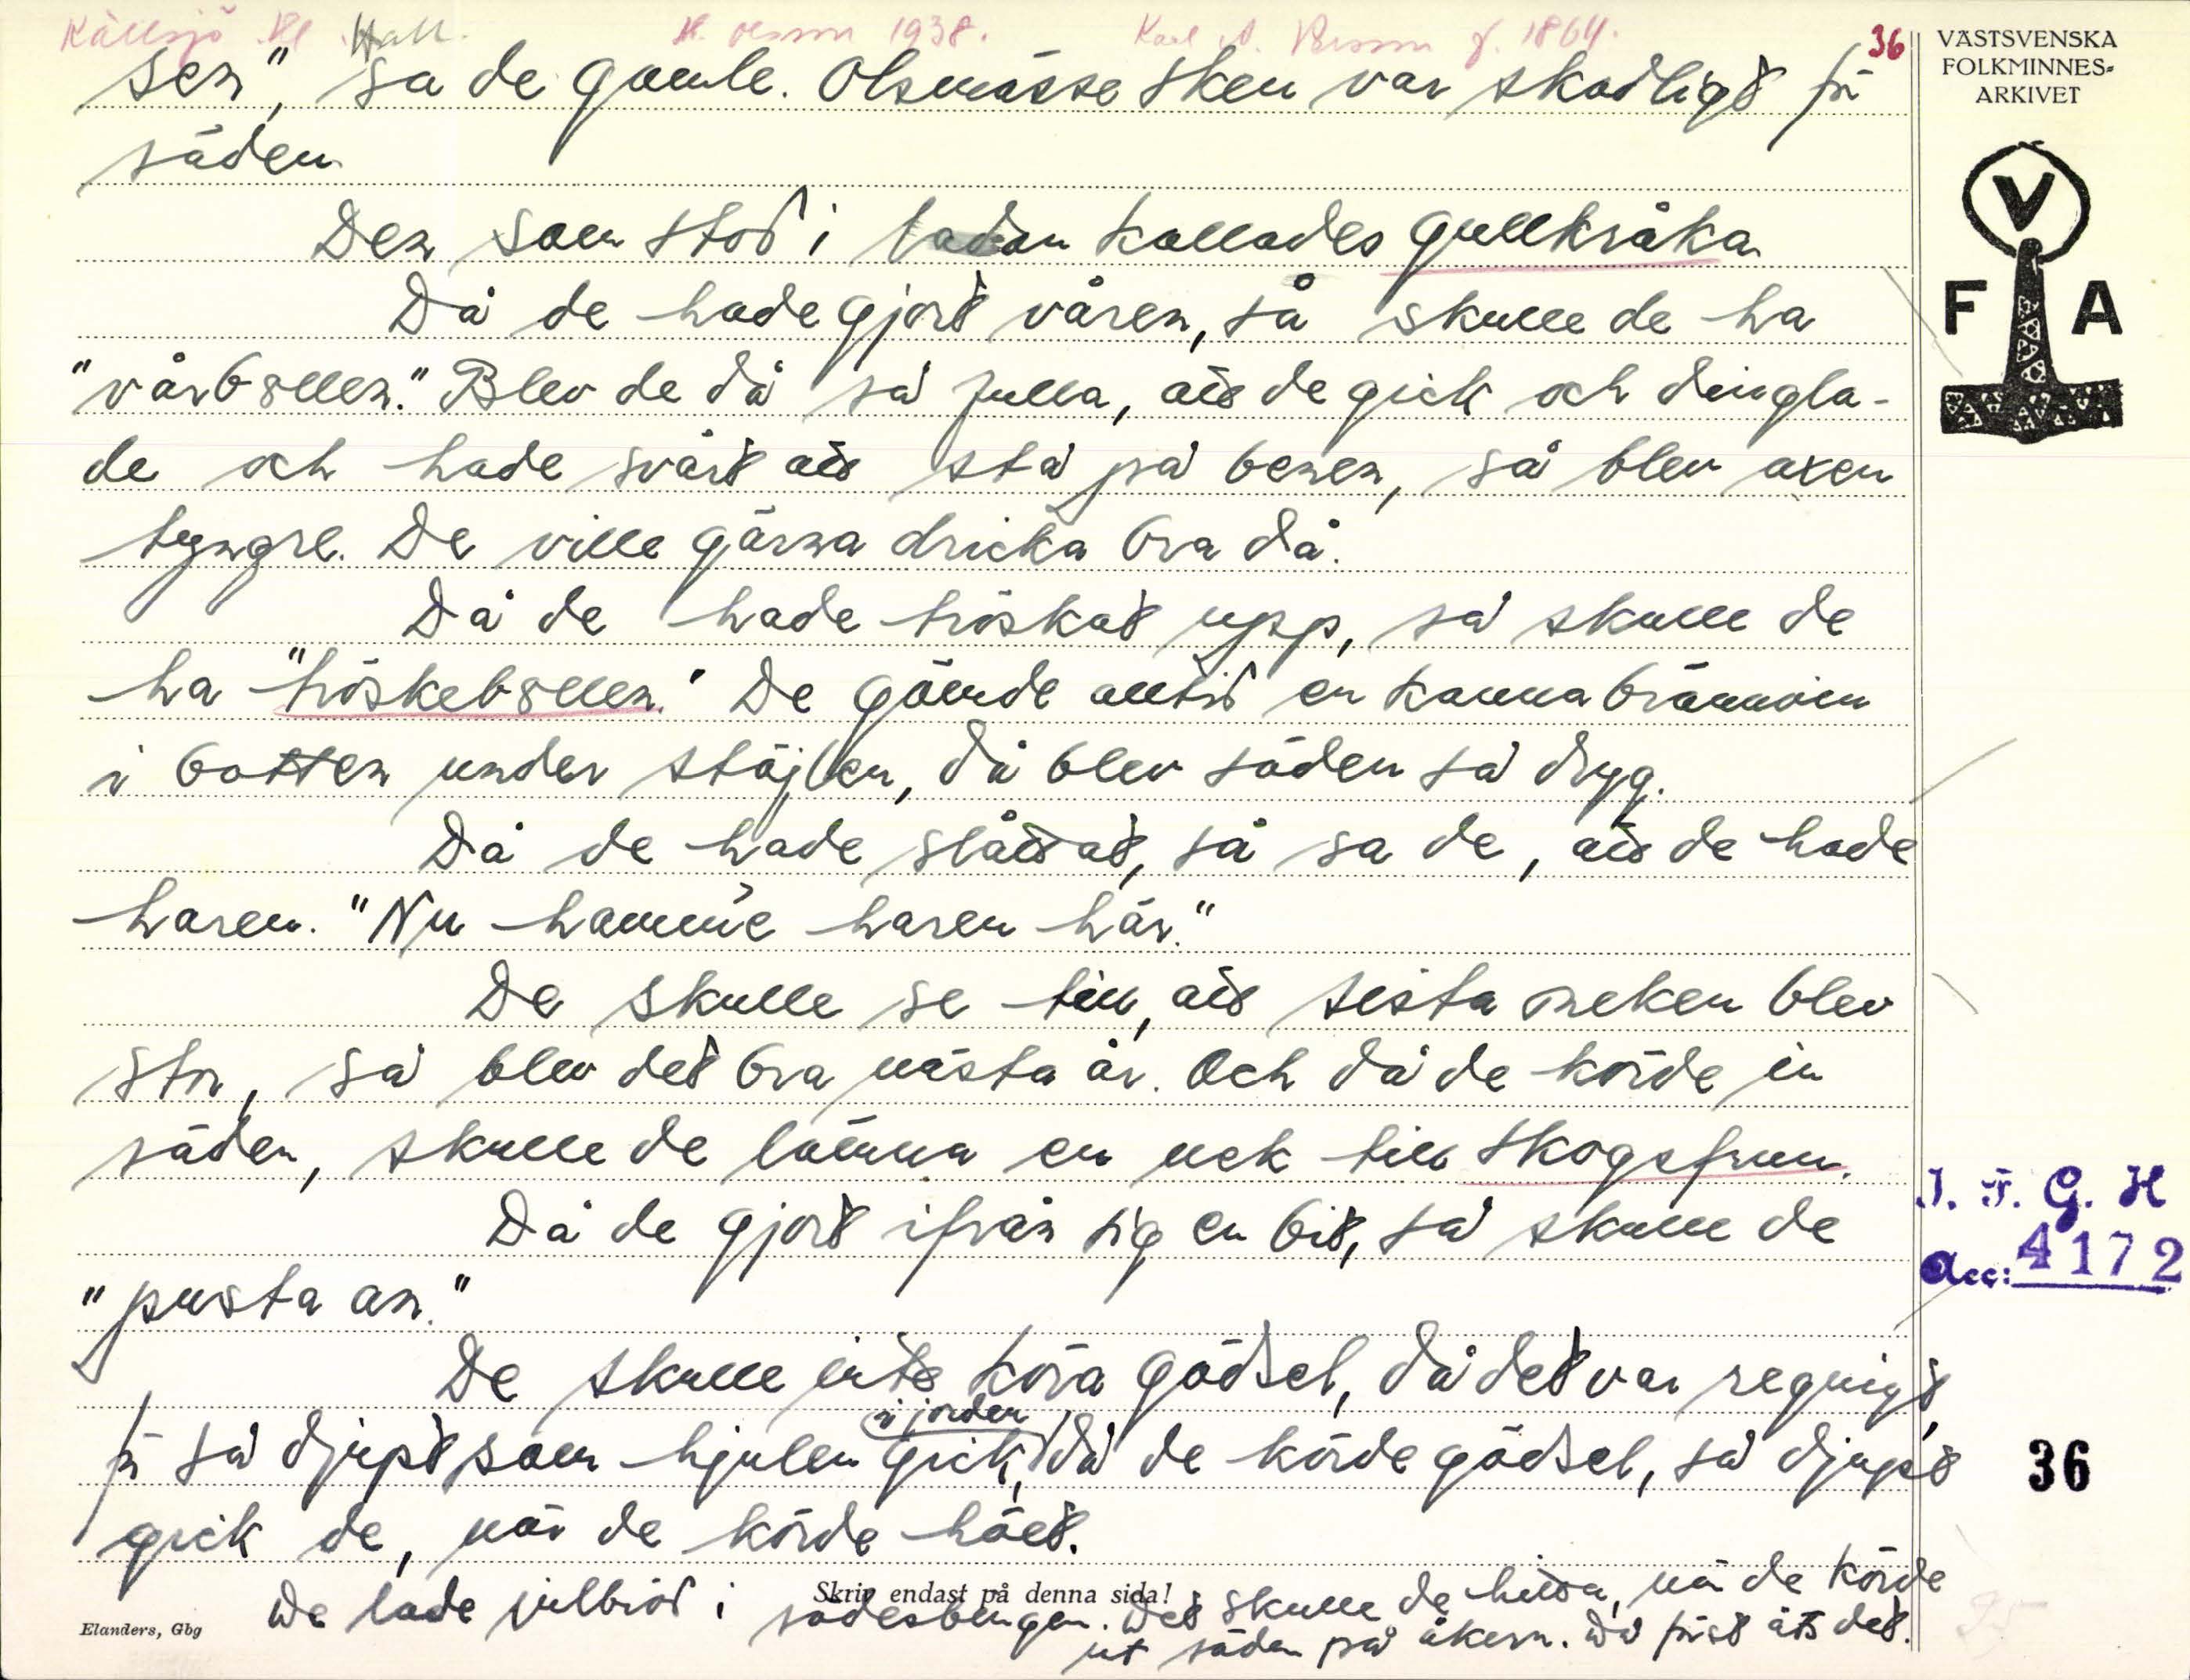 Källsjö Hl. Hall. 1938. Karl A. f. 1864. 36
sen", sa de gamle. Olsmässe sken var skadligt för
säden.
Den som stod i ladan kallades gullkråka
Då de hade gjort våren, så skulle de ha
"vårbollen." Blev de då så fulla, att de gick och dingla-
de och hade svårt att stå på benen, så blev axen
tyngre. De ville gärna dricka bra då.
Då de hade tröskat upp, så skulle de
ha "tröskebollen." De gömde alltid en kanna brännvin
i botten under stöjlen, då blev säden så dryg.
Då de hade slåttat, så sa de, att de hade
haren. "Nu hamme haren här."
De skulle se till, att sista neken blev
stor, så blev det bra nästa år. Och då de körde in
säden, skulle de lämna en nek till skogsfrun.
Då de gjort ifrån sig en bit, så skulle de
"pusta an."
De skulle inte köra gödsel, då det var regnigt,
i jorden
för så djupt som hjulen gick, då de körde gödsel, så djupt
gick de, när de körde höet.
De lade julbröd i sädesbingen. Det skulle de hitta, när de körde
ut säden på åkern. Då först åts det.
Skriv endast på denna sida!
Elanders, Gbg
VÄSTSVENSKA
FOLKMINNES-
ARKIVET
V
F A
I. F. G. H
Acc: 4172
36